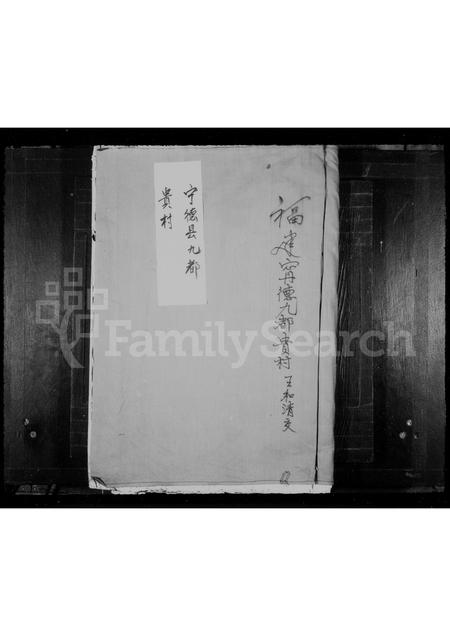 福建寧德九都貴村王和清交
宁德县九都
貴村
FamilySearch